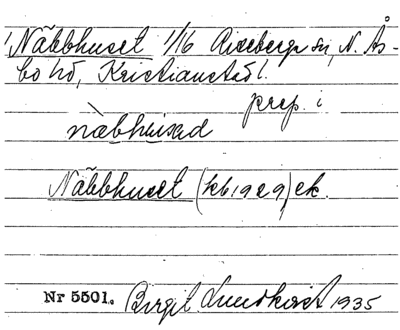 Näbbhuset 1/16 Riseberga sn, N. Ås-
bo hd, Kristianstads l.
prep. i
näbhused
Näbbhuset (kb 1929) ek.
Nr 5501. Birgit Lundkvist 1935